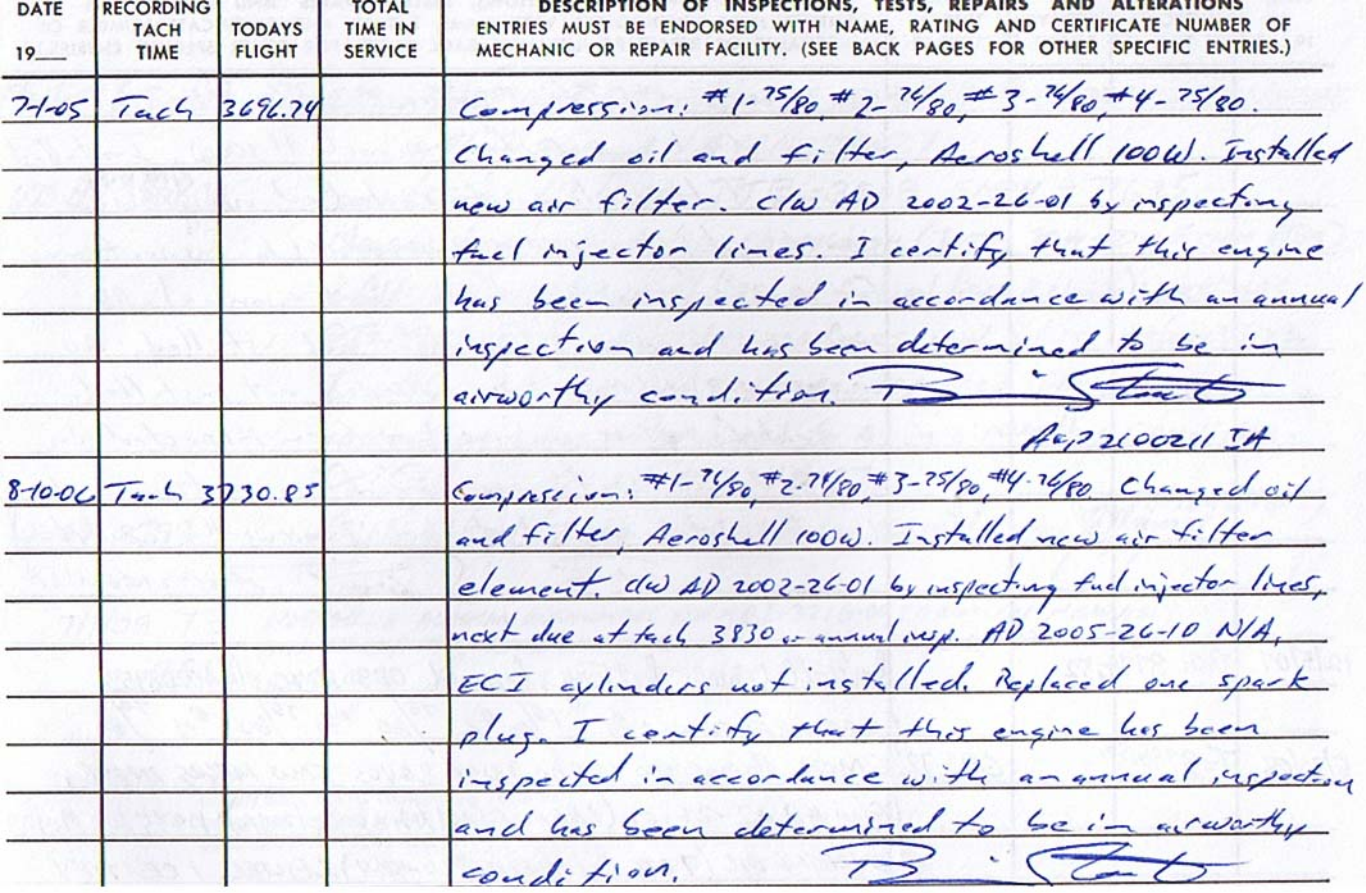 DATE RECORDING TOTAL DESCRIPTION OF INSPECTIONS, TESTS, REPAIRS AND ALTERATIONS
TACH TODAYS TIME IN ENTRIES MUST BE ENDORSED WITH NAME, RATING AND CERTIFICATE NUMBER OF
19__ TIME FLIGHT SERVICE MECHANIC OR REPAIR FACILITY. (SEE BACK PAGES FOR OTHER SPECIFIC ENTRIES.)
7-1-05 Tach 3696.74 Compression: #1-75/80, #2-76/80, #3-76/80, #4-75/80.
Changed oil and filter, Aeroshell 100W. Installed
new air filter. C/W AD 2002-26-01 by inspecting
fuel injector lines. I certify that this engine
has been inspected in accordance with an annual
inspection and has been determined to be in
airworthy condition.
A&P 2100211 IA
8-10-06 Tach 3730.85 Compression: #1-76/80, #2-78/80, #3-75/80, #4-76/80 Changed oil
and filter, Aeroshell 100W. Installed new air filter
element. C/W AD 2002-26-01 by inspecting fuel injector lines,
next due at tach 3830 or annual insp. AD 2005-26-10 N/A,
ECI cylinders not installed. Replaced one spark
plug. I certify that this engine has been
inspected in accordance with an annual inspection
and has been determined to be in airworthy
condition.